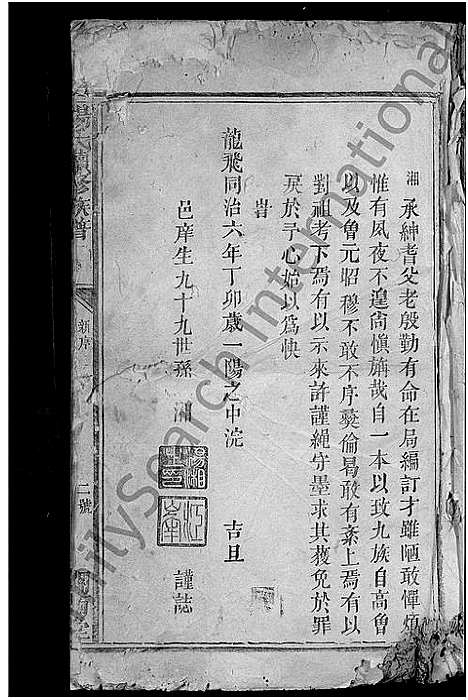 湘承紳耆父老殷勤有命在局編訂才雖陋敢憚煩
惟有夙夜不遑尚慎旃哉自一本以致九族自高曾
以及魯元昭穆不敢不序彜倫曷敢有紊上焉有以
對祖考下焉有以示來許謹繩守墨求其獲免於罪
戾於予心始以爲快
旹
龍飛同治六年丁卯歲一陽之中浣 吉旦
邑庠生九十九世孫 湘 謹誌
族譜
新序
二號
FamilySearch International